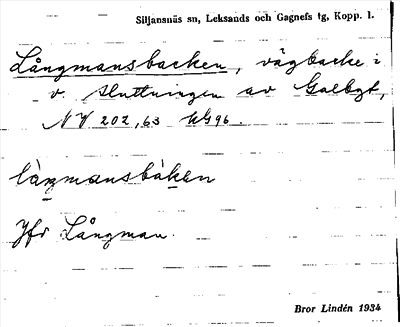 Siljansnäs sn, Leksands och Gagnefs tg, Kopp. l.
Långmansbacken, vägbacke i
v. sluttningen av Galbyt,
NV 202,63 UG96.
làŋmansbàken
Jfr Långman.
Bror Lindén 1934